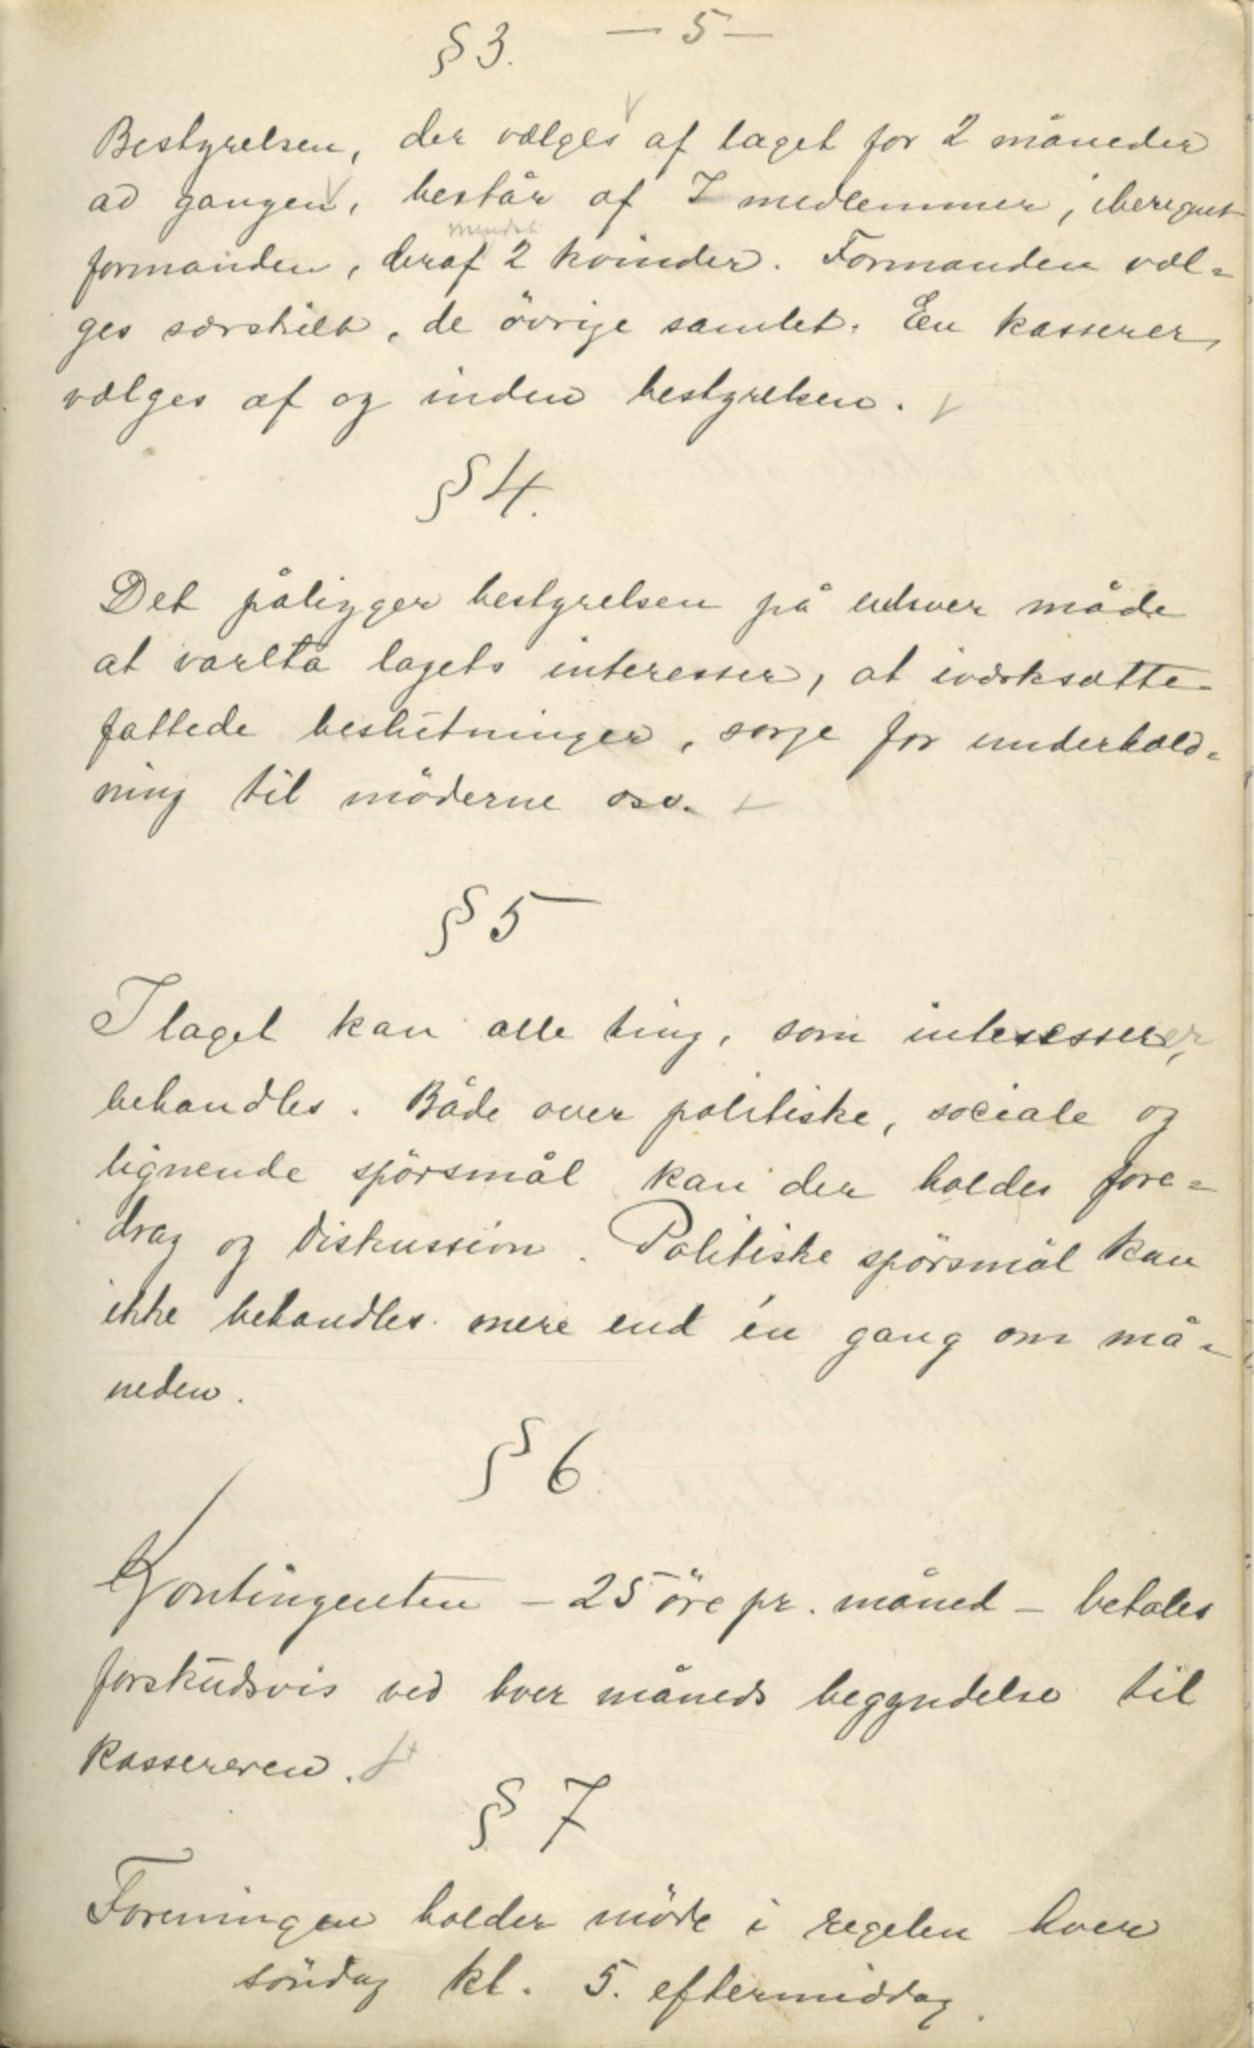 — 5 —
§ 3.
Bestyrelsen, der vælges af laget for 2 måneder
ad gangen, består af 7 medlemmer, iberegnet
mindst
formanden, deraf 2 kvinder. Formanden væl-
ges særskilt, de övrige samlet. En kasserer
vælges af og inden bestyrelsen.
§ 4.
Det påligger bestyrelsen på enhver måde
at vareta lagets interesser, at iværksætte
fattede beslutninger, sørge for underhold-
ning til möderne osv.
§ 5
I laget kan alle ting, som interesserer,
behandles. Både over politiske, sociale og
lignende spörsmål kan der holdes fore-
drag og diskussion. Politiske spörsmål kan
ikke behandles mere end én gang om må-
neden.
§ 6
Kontingenten – 25 öre pr. måned – betales
forskudsvis ved hver måneds begyndelse til
kassereren.
§ 7
Foreningen holder möde i regelen hver
söndag kl. 5. eftermiddag.